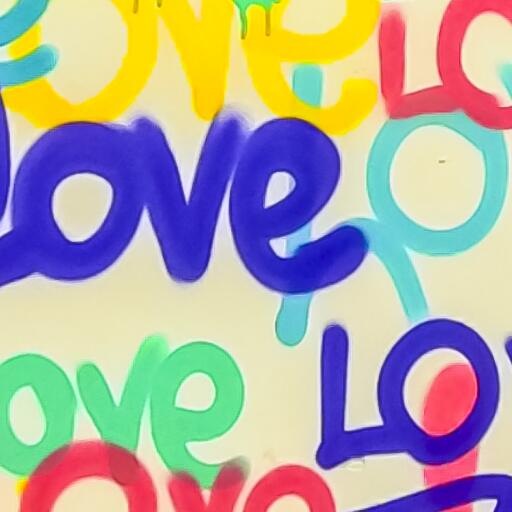 ove Lo
love
ove Lov
ove